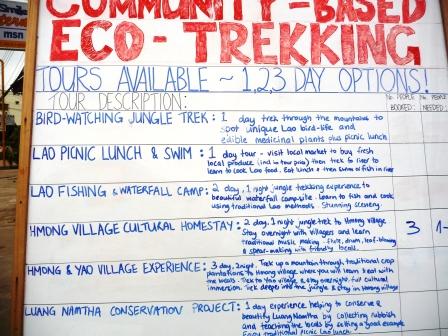 COMMUNITY-BASED
ECO-TREKKING
msn
TOURS AVAILABLE ~ 1,2,3 DAY OPTIONS!
TOUR DESCRIPTION:
No. PEOPLE BOOKED:
No. PEOPLE NEEDED:
BIRD-WATCHING JUNGLE TREK: 1 day trek through the mountains to
spot unique Lao bird-life and
edible medicinal plants plus picnic lunch
LAO PICNIC LUNCH & SWIM: 1 day tour - visit local market to buy fresh
local produce (incl in tour price) then trek to river to
learn to cook Lao food. Eat lunch & then swim or fish in river
LAO FISHING & WATERFALL CAMP: 2 day, 1 night jungle trekking experience to
beautiful waterfall campsite. Learn to fish and cook
using traditional Lao methods. Stunning scenery.
HMONG VILLAGE CULTURAL HOMESTAY: 2 day, 1 night jungle trek to Hmong village
Stay overnight with villagers and learn
traditional music making - flute, drum, leaf-blowing
& spear-making with friendly locals.
3
1-
HMONG & YAO VILLAGE EXPERIENCE: 3 day, 2 night. Trek up a mountain through traditional crop
plantations to Hmong village where you will learn & eat with
the locals. Trek to Yao village & stay overnight, full cultural
immersion. Trek deeper into the jungle & stay in Hmong village
LUANG NAMTHA CONSERVATION PROJECT: 1 day experience helping to conserve &
beautify Luang Namtha by collecting rubbish
and teaching the locals by setting a good example
Enjoy traditional picnic Lao lunch